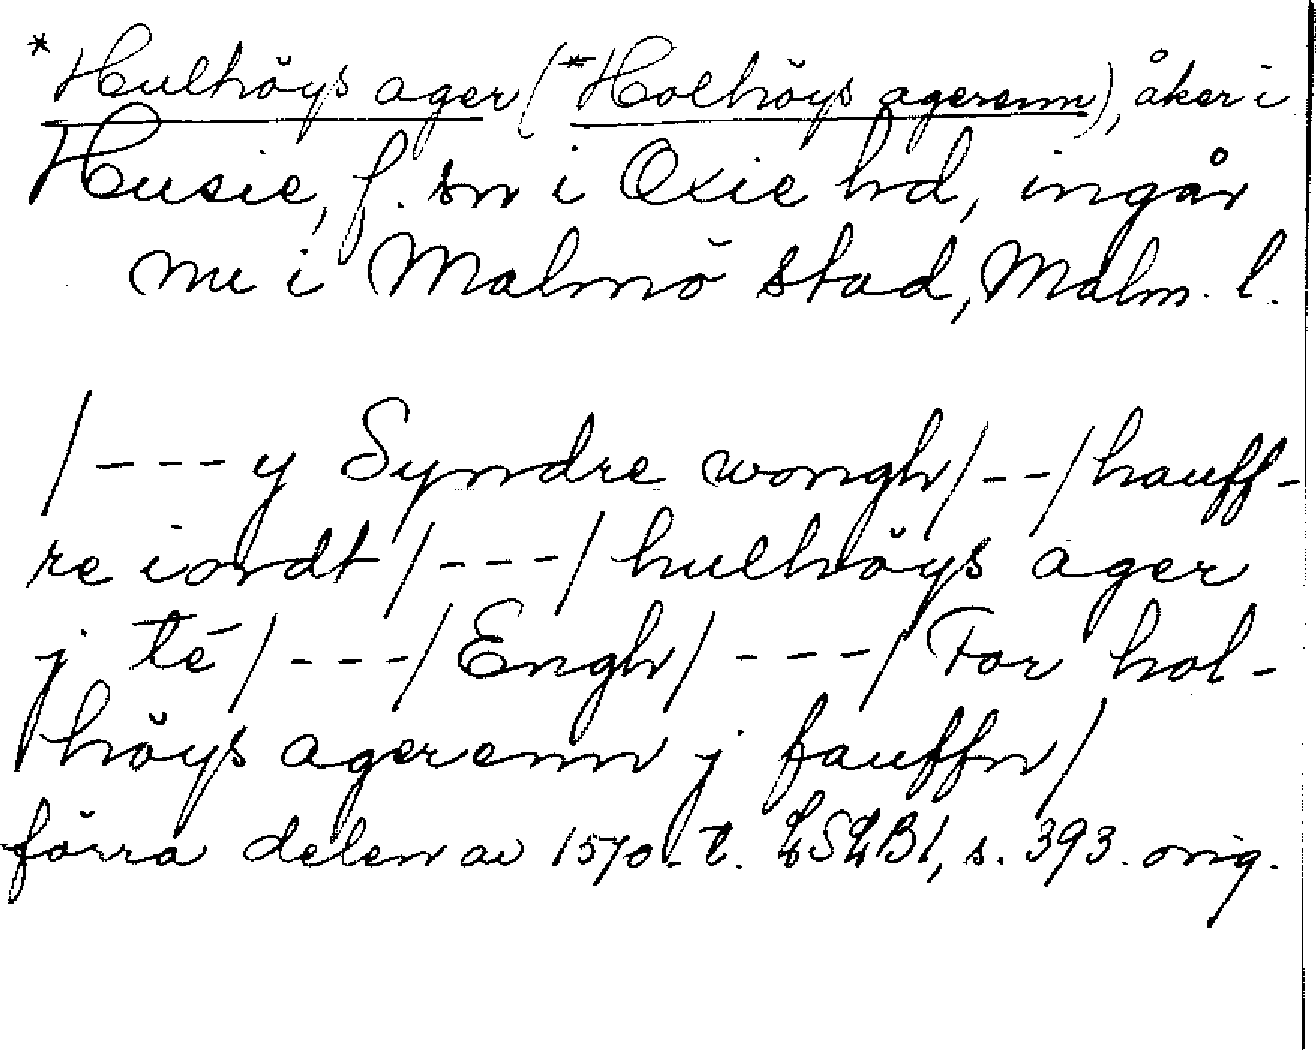 *Hulhöys ager (*Holhöys agerenn), åker i
Husie, f. sn i Oxie hd, ingår
nu i Malmö stad, Malm. l.
/---y Syndre wongh/--/hauff-
re iordt/---/hulhöys ager
j té/---/Engh/---/For hol-
höys agerenn j fauffn/
förra delen av 1570-t. LSLB1, s. 393. orig.